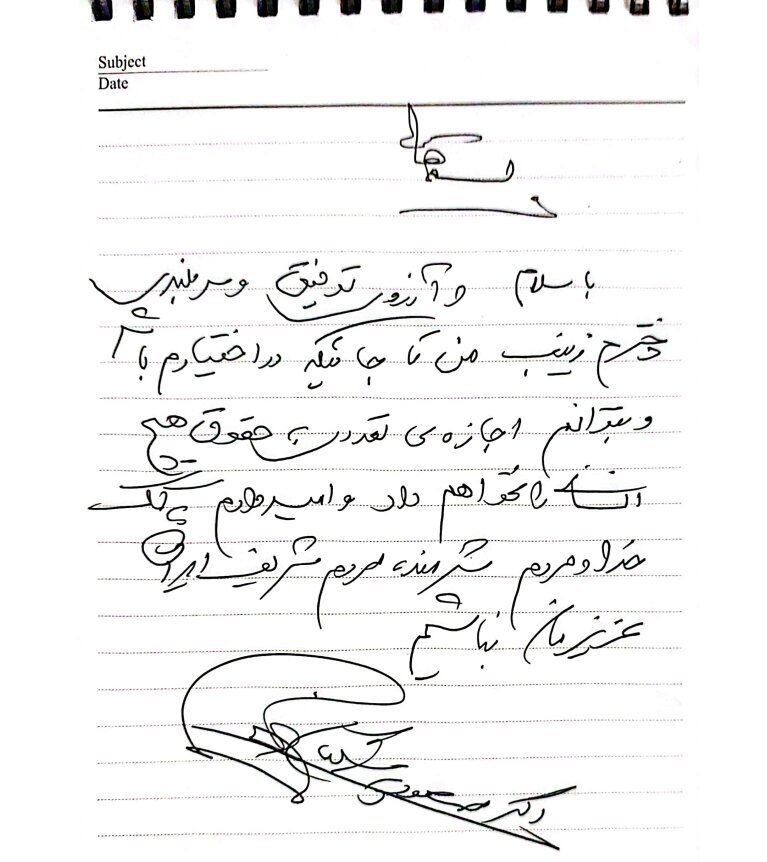 Subject
Date
با سلام و آرزوی توفیق و سربلندی
دخترم زینب من تا جائیکه در اختیارم باشد
و بتوانم اجازه‌ی تعدی به حقوق هیچ
انسانی را نخواهم داد و امیدوارم به کمک
خدا و مردم شرمنده مردم شریف ایران
عزیزمان نباشم
دکتر مسعود